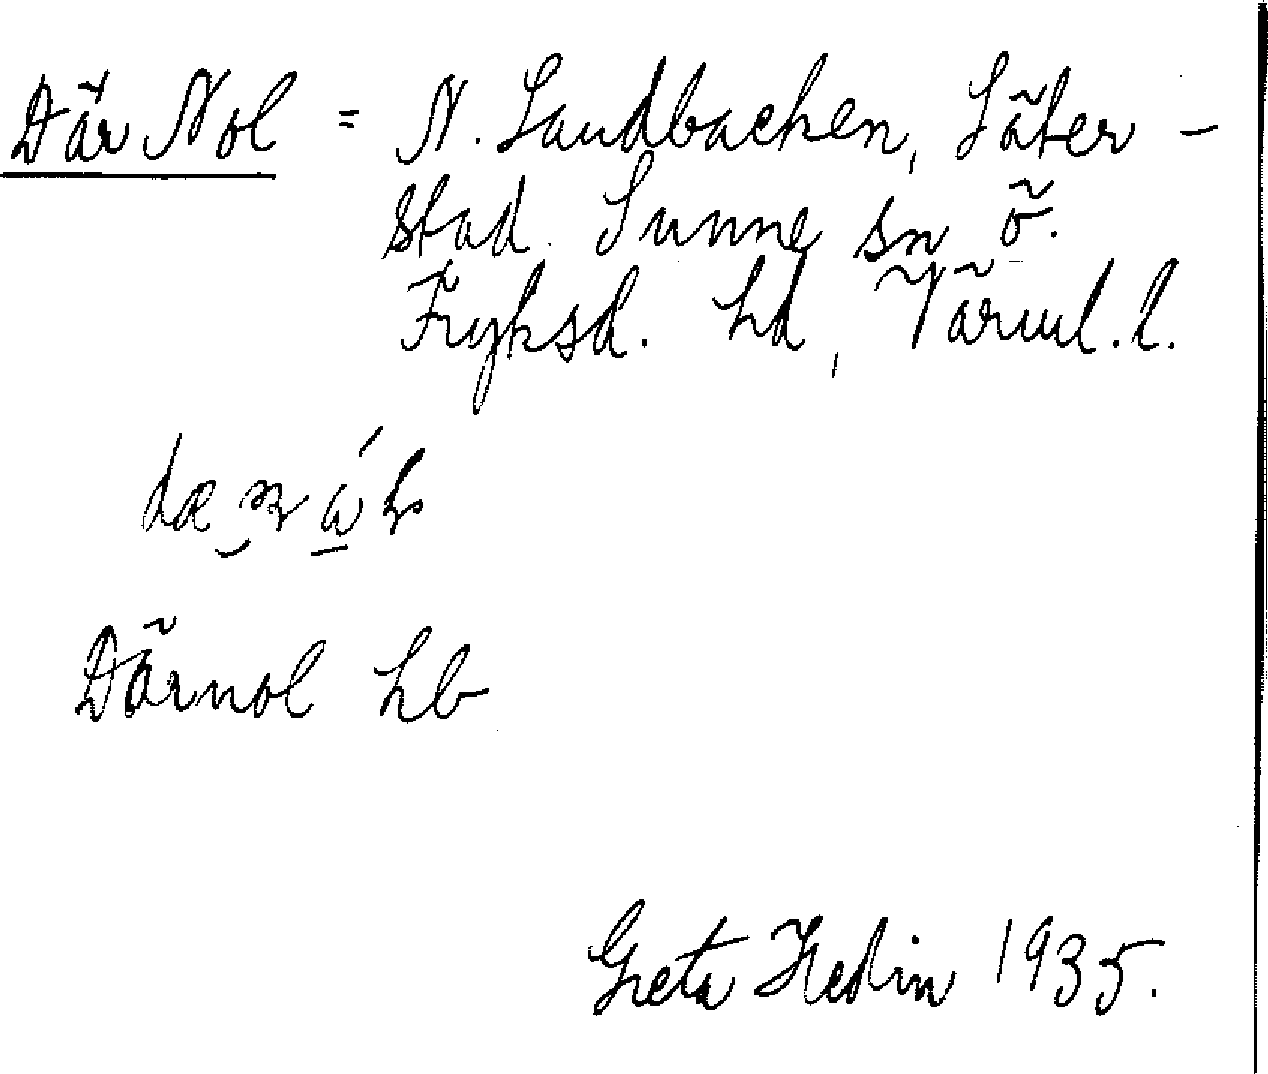 Där Nol = N. Sandbacken, Säter-
stad. Sunne sn ö.
Fryksd. hd, Värml.l.
Därnol hb
Greta Hedin 1935.